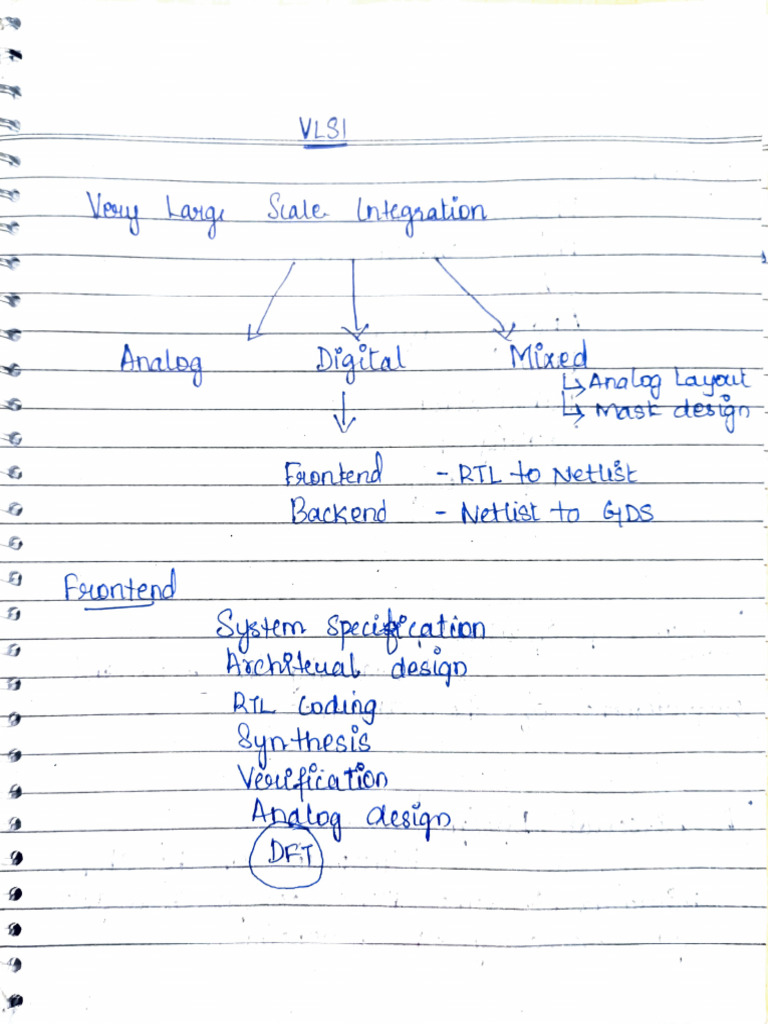 VLSI
Very Large Scale Integration
Analog Digital Mixed
↳ Analog Layout
↳ Mask design
Frontend - RTL to Netlist
Backend - Netlist to GDS
Frontend
System specification
Architeual design
RTL Coding
Synthesis
Verification
Analog design
DFT